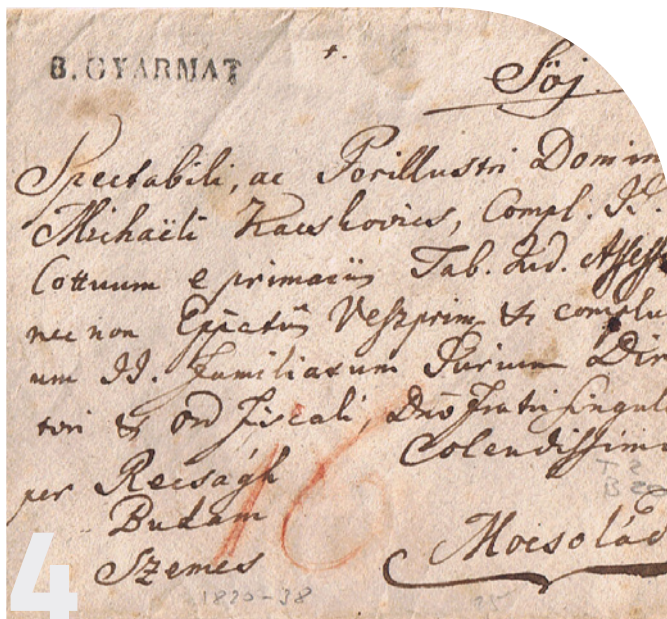 B. GYARMAT
Söj.
Spectabili, ac Perillustri Domin
Michaëli Kacskovics, Compl. II.
Cottuum e primariis Tab. Jud. Assess
nec non Eppatus Veszprim & complu
um II. Familiarum Jurium Dire
tori & Ord Fiscali, Dno Fratri singul
Colendissimo
per Recságh
Budam
Szemes
Mocsolád
16
1820-38
4